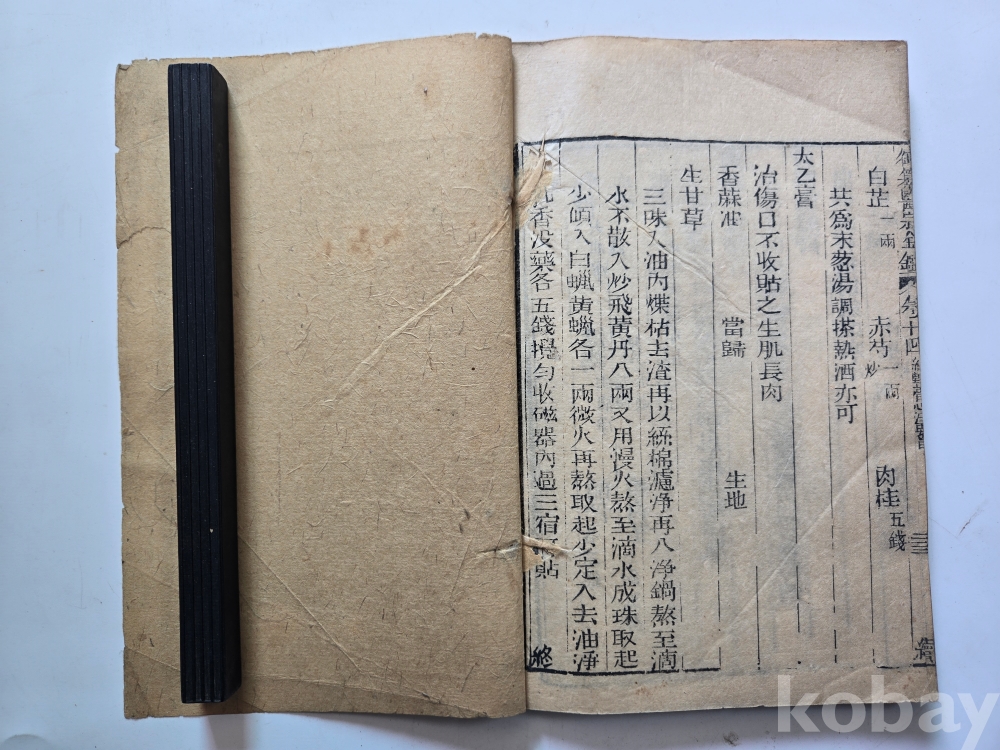 白芷一兩 赤芍炒一兩 肉桂五錢
共為末葱湯調搽熱酒亦可
太乙膏
治傷口不收貼之生肌長肉
香蔴油 當歸 生地
生甘草
三味入油內煠枯去渣再以絲棉濾淨再入淨鍋熬至滴
水不散入炒飛黃丹八兩又用慢火熬至滴水成珠取起
少頃入白蠟黃蠟各一兩微火再熬取起少定入去油淨
乳香没藥各五錢攪勻收磁器內過三宿
貼
終
卷十四
kobay